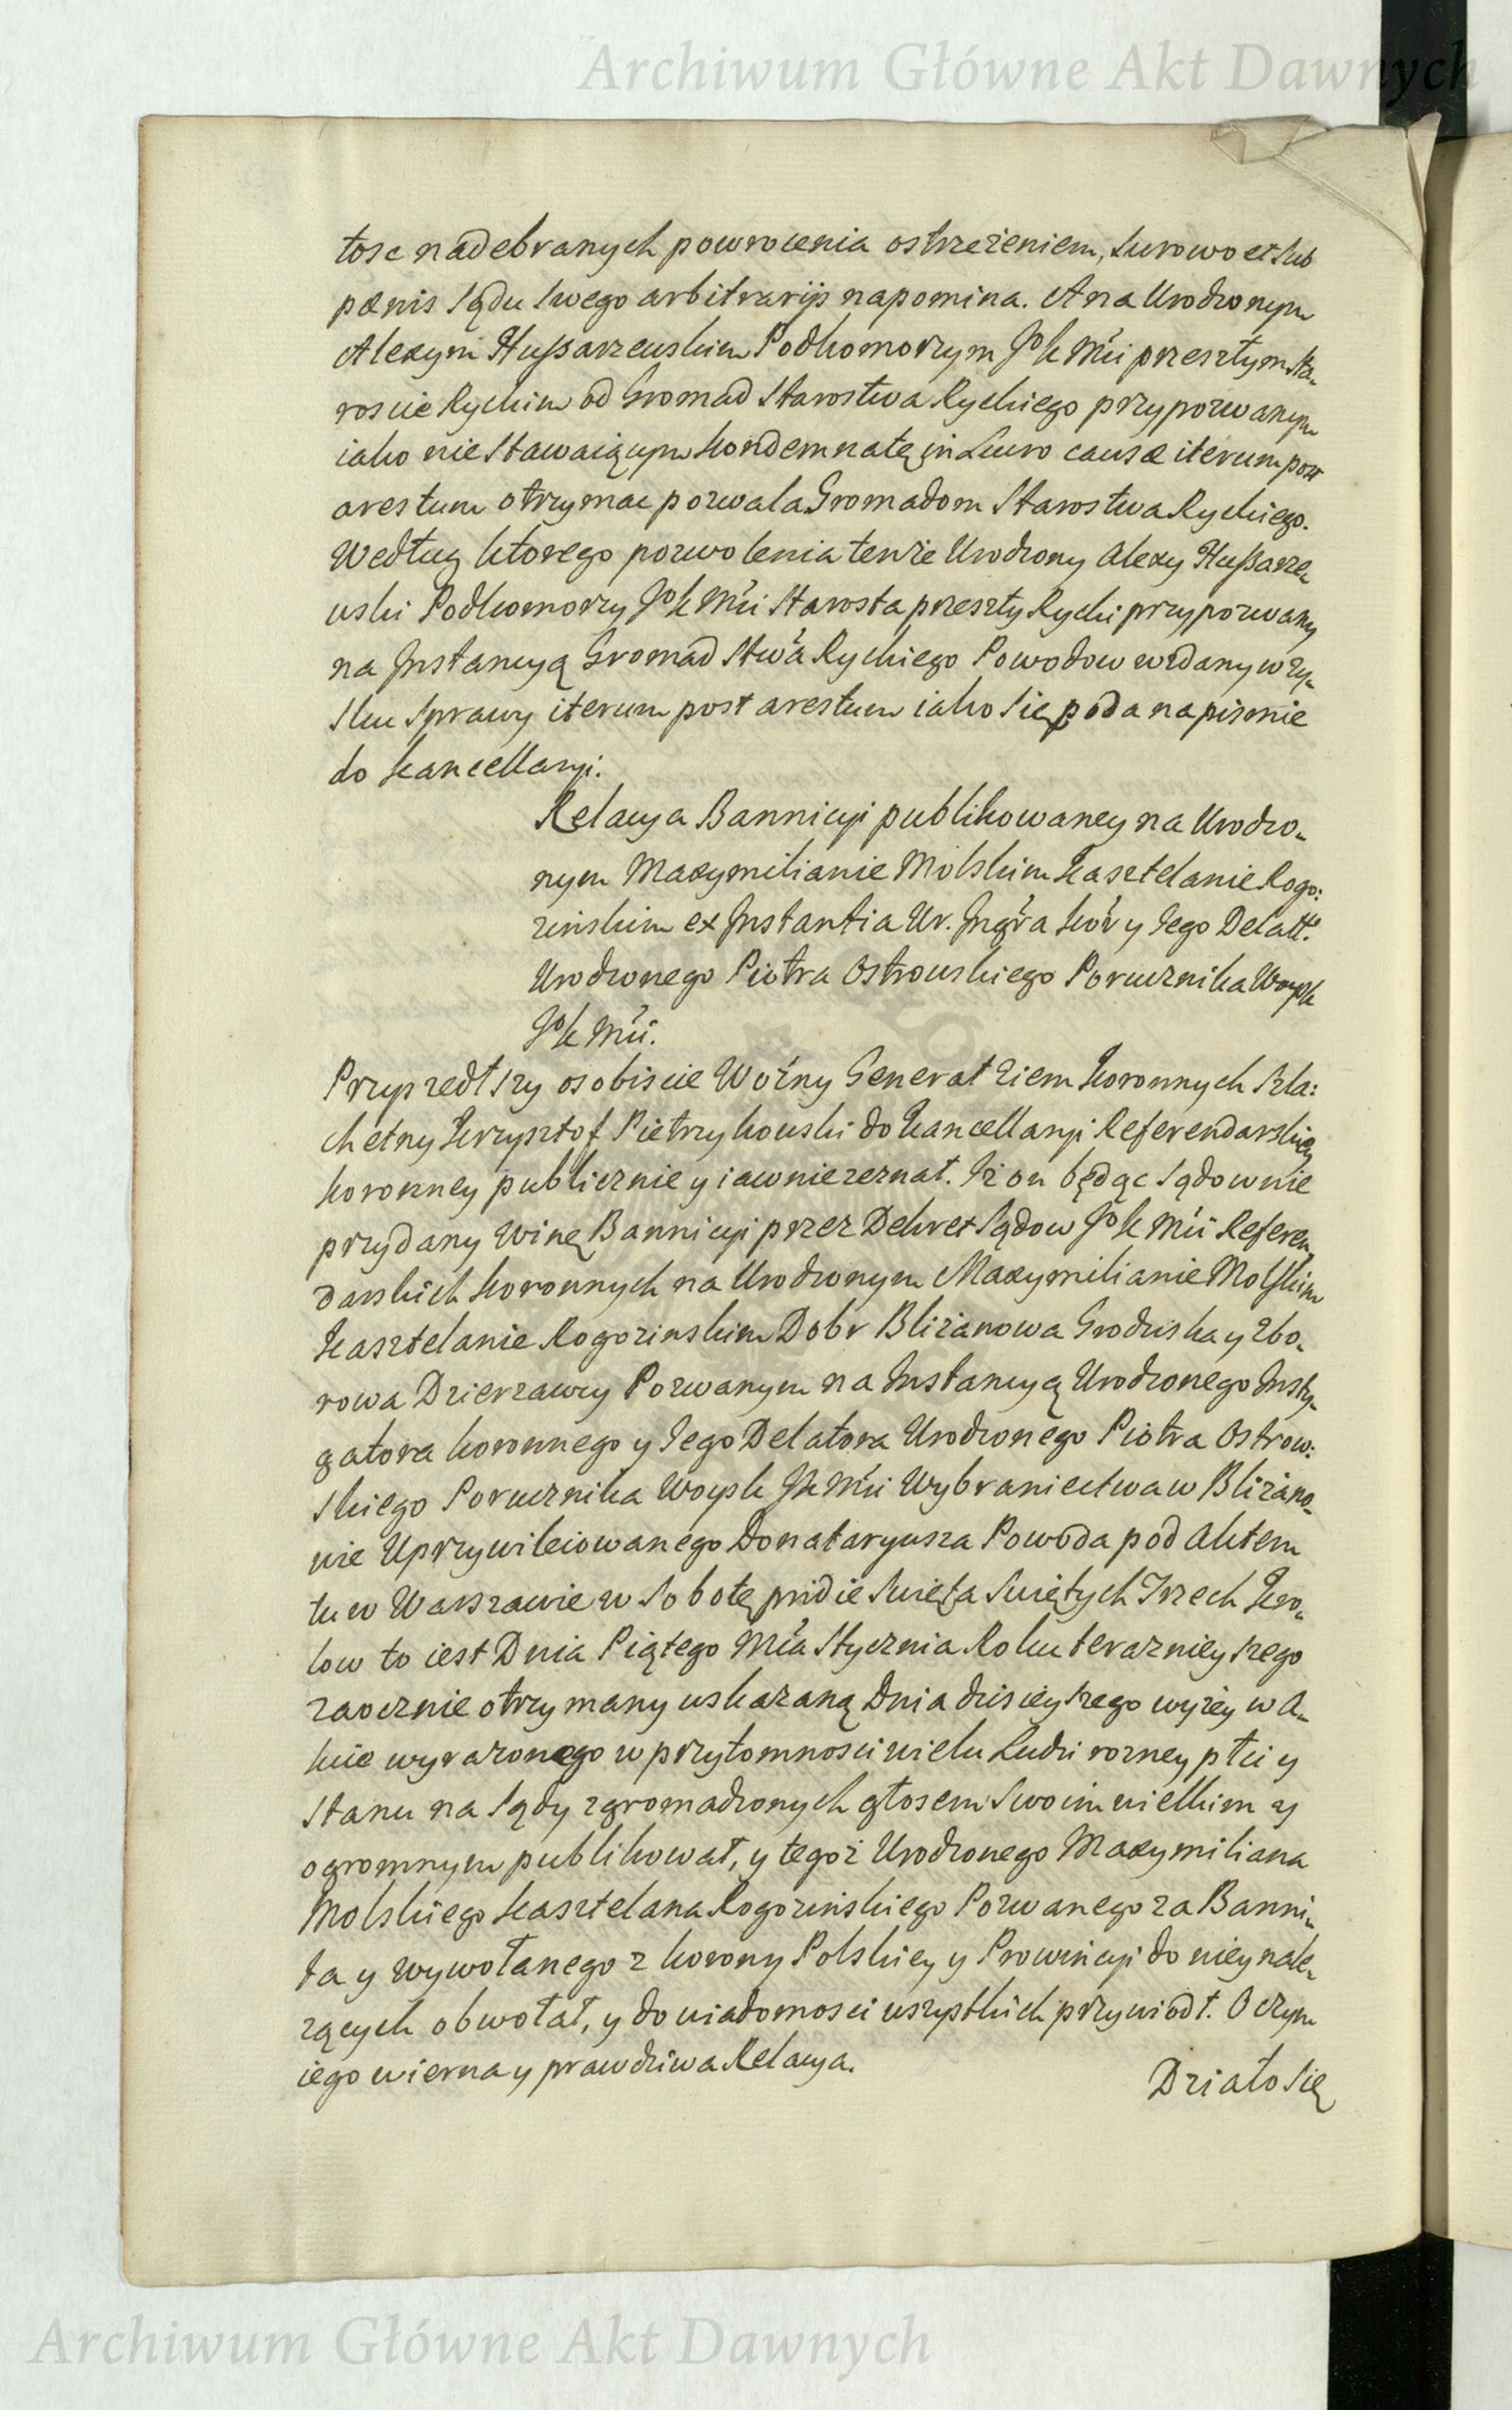 Archiwum Główne Akt Dawnych
tosc nadebranych powrocenia ostrzeżeniem, surowo et sub
pænis Sądu Swego arbitrarijs napomina. A na Urodzonym
Alexym Hussarzewskim Podkomorzym JoKMći przeszłym Sta-
roscie Ryckim od Gromad Starostwa Ryckiego przypozwanym
iako nie Stawaiącym kondemnatę in Lucro causæ iterum post
arestum otrzymac pozwala Gromadom Starostwa Ryckiego.
Według ktorego pozwolenia tenże Urodzony Alexy Hussarze-
wski Podkomorzy JoKMći Starosta przeszły Rycki przypozwany
na Jnstancyą Gromad Stwa Ryckiego Powodow wzdany w zy-
sku Sprawy iterum post arestum iako Się poda na pismie
do Kancellaryi.
Relacya Bannicyi publikowaney na Urodzo-
nym Maxymilianie Molskim Kasztelanie Rogo:
zinskim ex Jnstantia Ur. Jngra Kor y Jego Delatt.
Urodzonego Piotra Ostrowskiego Porucznika Woysk
JoKMći.
Przyszedłszy osobiscie Woźny Generał Ziem Koronnych Szla:
chetny Krzysztof Pietrzykowski do Kancellaryi Referendarskiey
koronney publicznie y iawnie zeznał. Iż on będąc Sądownie
przydany Winę Bannicyi przez Dekret Sądow JoKMći Referen-
darskich koronnych na Urodzonym Maxymilianie Molskim
Kasztelanie Rogozinskim Dobr Bliżanowa Grodziska y Zbo-
rowa Dzierzawcy Pozwanym na Jnstancyą Urodzonego Jnsty-
gatora koronnego y Jego Delatora Urodzonego Piotra Ostrow:
skiego Porucznika Woysk JKMći Wybraniectwa w Bliżano-
wie Uprzywileiowanego Donataryusza Powoda pod Aktem
tu w Warszawie w Sobotę pridie Swięta Swiętych Trzech Kro-
low to iest Dnia Piątego Mca Stycznia Roku teraznieyszego
zaocznie otrzymany wskazaną Dnia dzisieyszego wyżey w A-
kcie wyrazonego w przytomnosci wielu Ludzi rozney płci y
Stanu na Sądy zgromadzonych głosem Swoim wielkim y
ogromnym publikował, y tegoż Urodzonego Maxymiliana
Molskiego Kasztelana Rogozinskiego Pozwanego za Banni-
ta y wywołanego z korony Polskiey y Prowincyi do niey nale-
zących obwołał, y do wiadomosci wszystkich przywiodł. O czym
iego wierna y prawdziwa Relacya.
Działo Się
Archiwum Główne Akt Dawnych